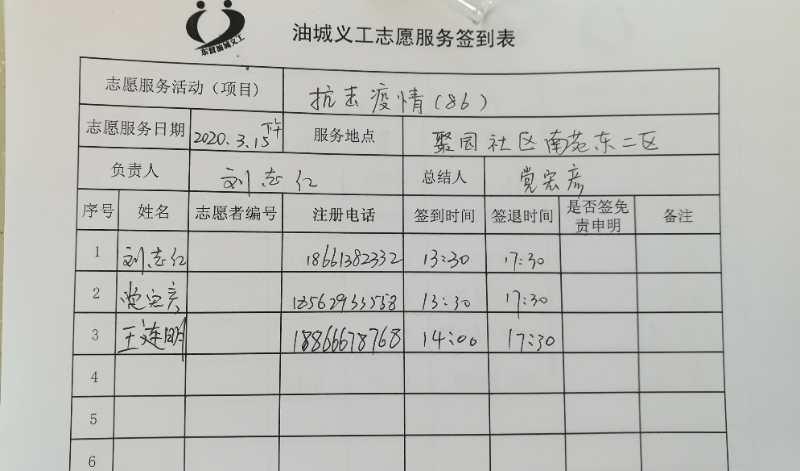 东营油城义工
油城义工志愿服务签到表
志愿服务活动（项目） 抗击疫情(86)
志愿服务日期 2020.3.15下午 服务地点 聚园社区南苑东二区
负责人 刘志仁 总结人 党宏彦
序号 姓名 志愿者编号 注册电话 签到时间 签退时间 是否签免责申明 备注
1 刘志仁 18661382332 13:30 17:30
2 党宏彦 13:30 17:30
3 王连明 18866678768 14:00 17:30
4
5
6